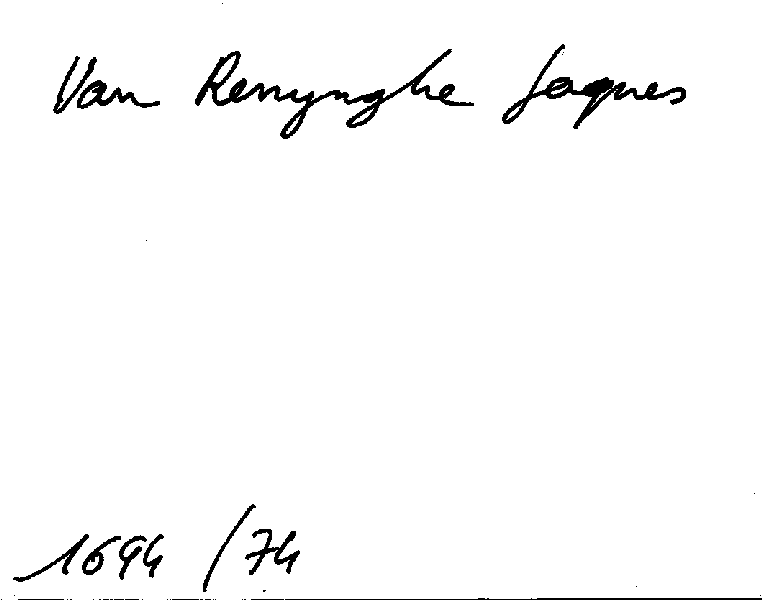 Van Renynghe Jaques
1694 / 74